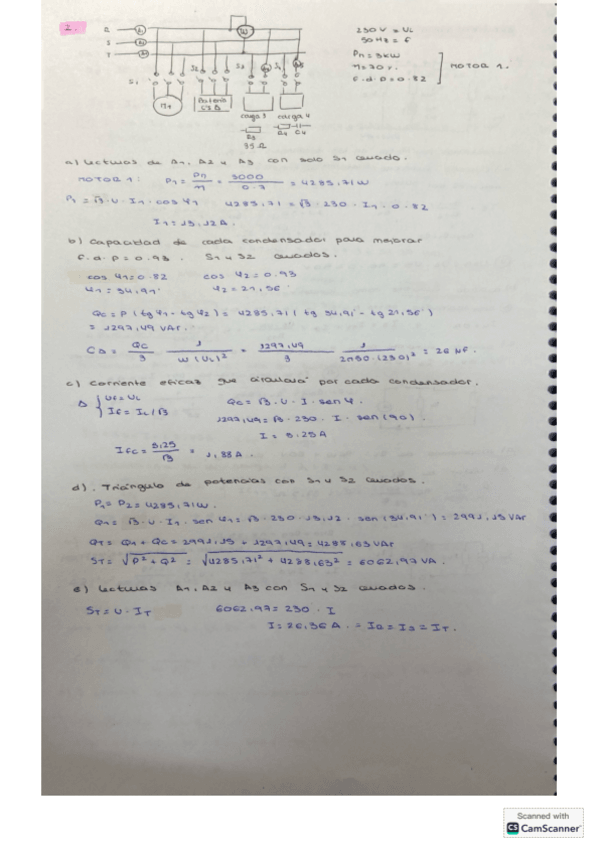 2.
R
S
T
A1
A2
A3
W
S1
S2
S3
S4
M1
Batería
CBD
carga 3
carga 4
R3
95 Ω
R4 C4
230 V = UL
50 Hz = f
Pn = 3kW
f.d.p = 0.82
MOTOR 1.
a) Lecturas de A1, A2 y A3 con solo S1 cerrado.
MOTOR 1: P1 = Pn/η = 3000/0.7 = 4285,71 W
P1 = √3 · U · I1 · cos φ1 4285,71 = √3 · 230 · I1 · 0.82
I1 = 13,12 A.
b) Capacidad de cada condensador para mejorar
f.d.p = 0.93. S1 y S2 cerrados.
cos φ1 = 0.82 cos φ2 = 0.93
φ1 = 34,91° φ2 = 21,56°
Qc = P (tg φ1 - tg φ2) = 4285,71 (tg 34,91° - tg 21,56°)
= 1297,49 VAr.
CΔ = Qc/3 · 1/(W (UL)²) = 1297,49/3 · 1/(2π50 · (230)²) = 26 μF.
c) Corriente eficaz que circulará por cada condensador.
Δ { Uf = UL Qc = √3 · U · I · sen φ.
If = IL/√3 1297,49 = √3 · 230 · I · sen (90)
I = 3.25 A
Ifc = 3,25/√3 = 1,88 A.
d). Triángulo de potencias con S1 y S2 cerrados.
P1 = P2 = 4285,71 W.
Q1 = √3 · U · I1 · sen φ1 = √3 · 230 · 13,12 · sen (34,91°) = 2991,15 VAr
QT = Q1 + Qc = 2991,15 + 1297,49 = 4288,63 VAr
ST = √P² + Q² = √4285,71² + 4288,63² = 6062,97 VA.
e) Lecturas A1, A2 y A3 con S1 y S2 cerrados.
ST = U · IT 6062,97 = 230 · I
I = 26,36 A. = IR = IS = IT.
Scanned with
CS CamScanner